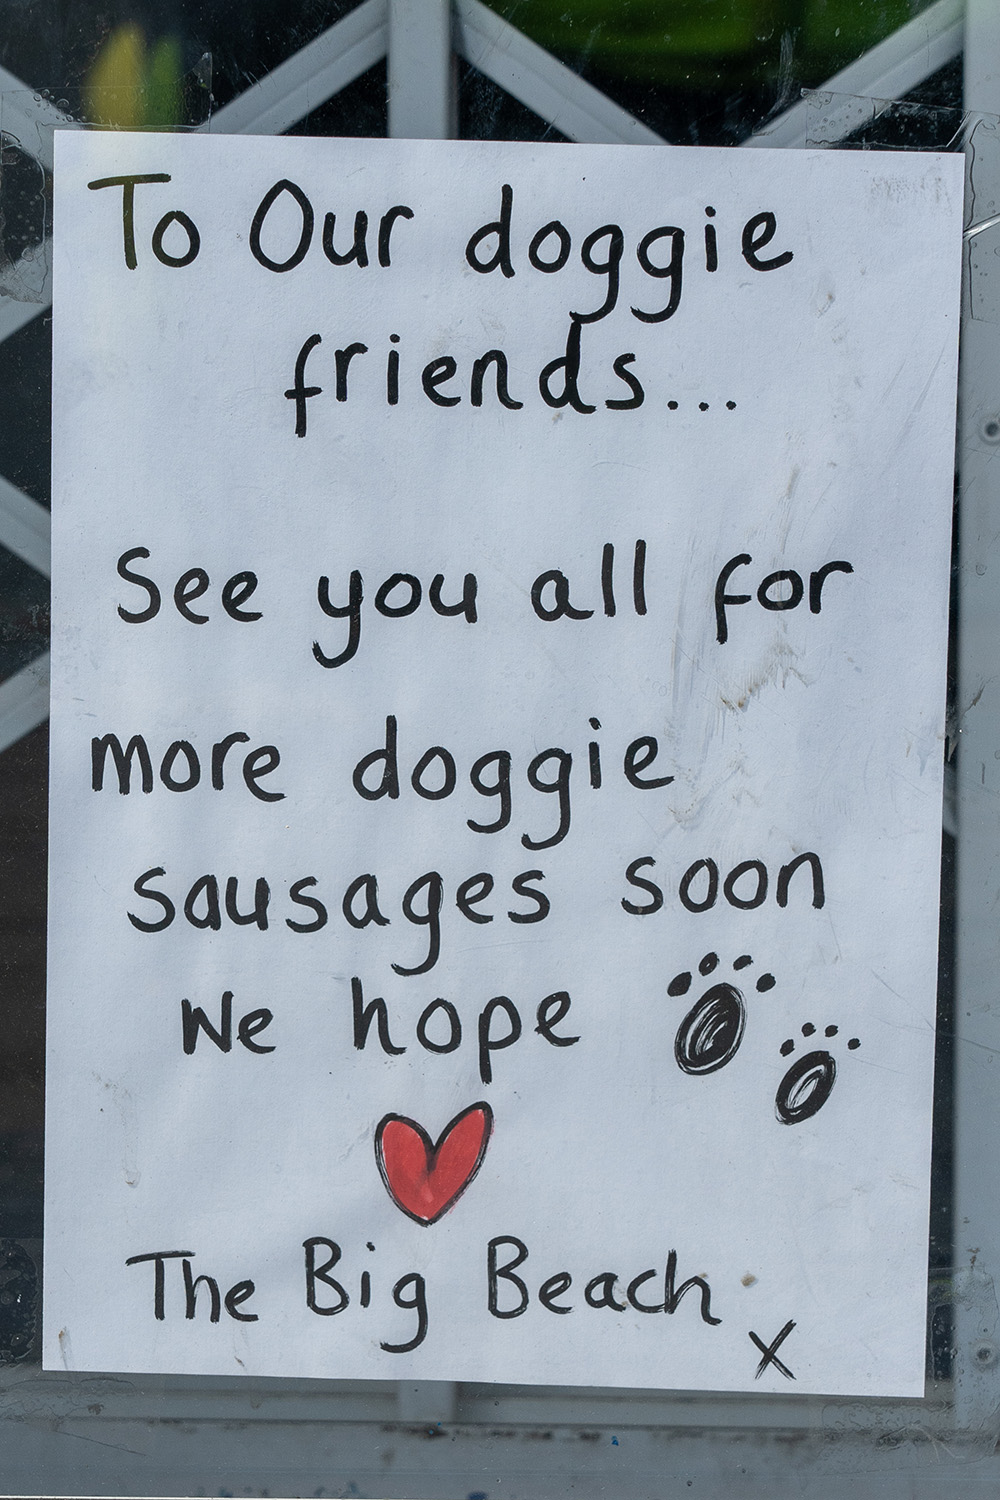 To Our doggie
friends...
See you all for
more doggie
sausages soon
We hope
The Big Beach
x